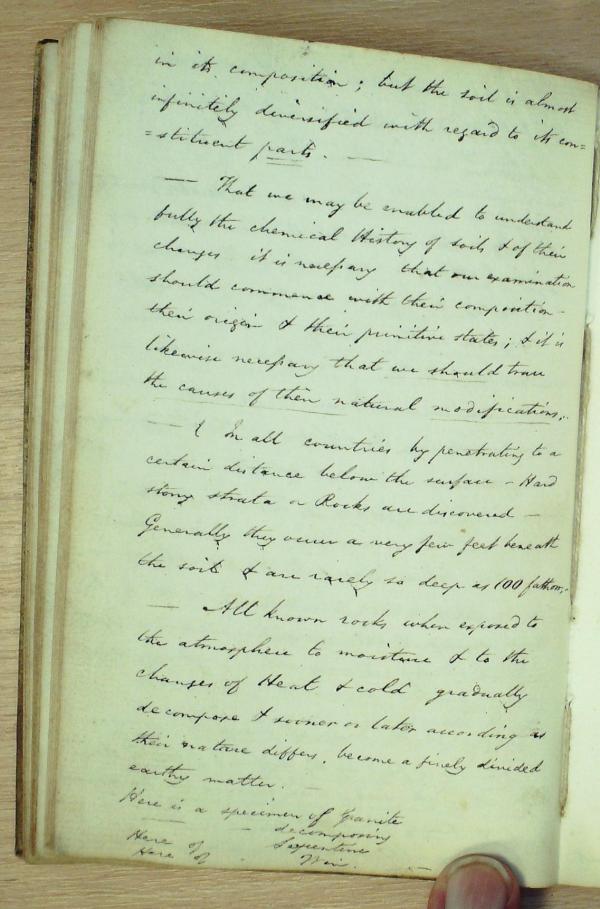 in its composition; but the soil is almost
infinitely diversified with regard to its con=
=stituent parts. —
— That we may be enabled to understand
fully the chemical History of soils & of their
changes it is necessary that our examination
should commence with their composition -
their origin & their primitive states; & it is
likewise necessary that we should trace
the causes of their natural modifications,.
— In all countries by penetrating to a
certain distance below the surface - Hard
stony strata or Rocks are discovered —
Generally they occur a very few feet beneath
the soil & are rarely so deep as 100 fathoms.
— All known rocks when exposed to
the atmosphere to moisture & to the
changes of Heat & cold gradually
decompose & sooner or later according as
their nature differs, become a finely divided
earthy matter. —
Here is a specimen of Granite
— - decomposing
Here of Serpentine
Here of